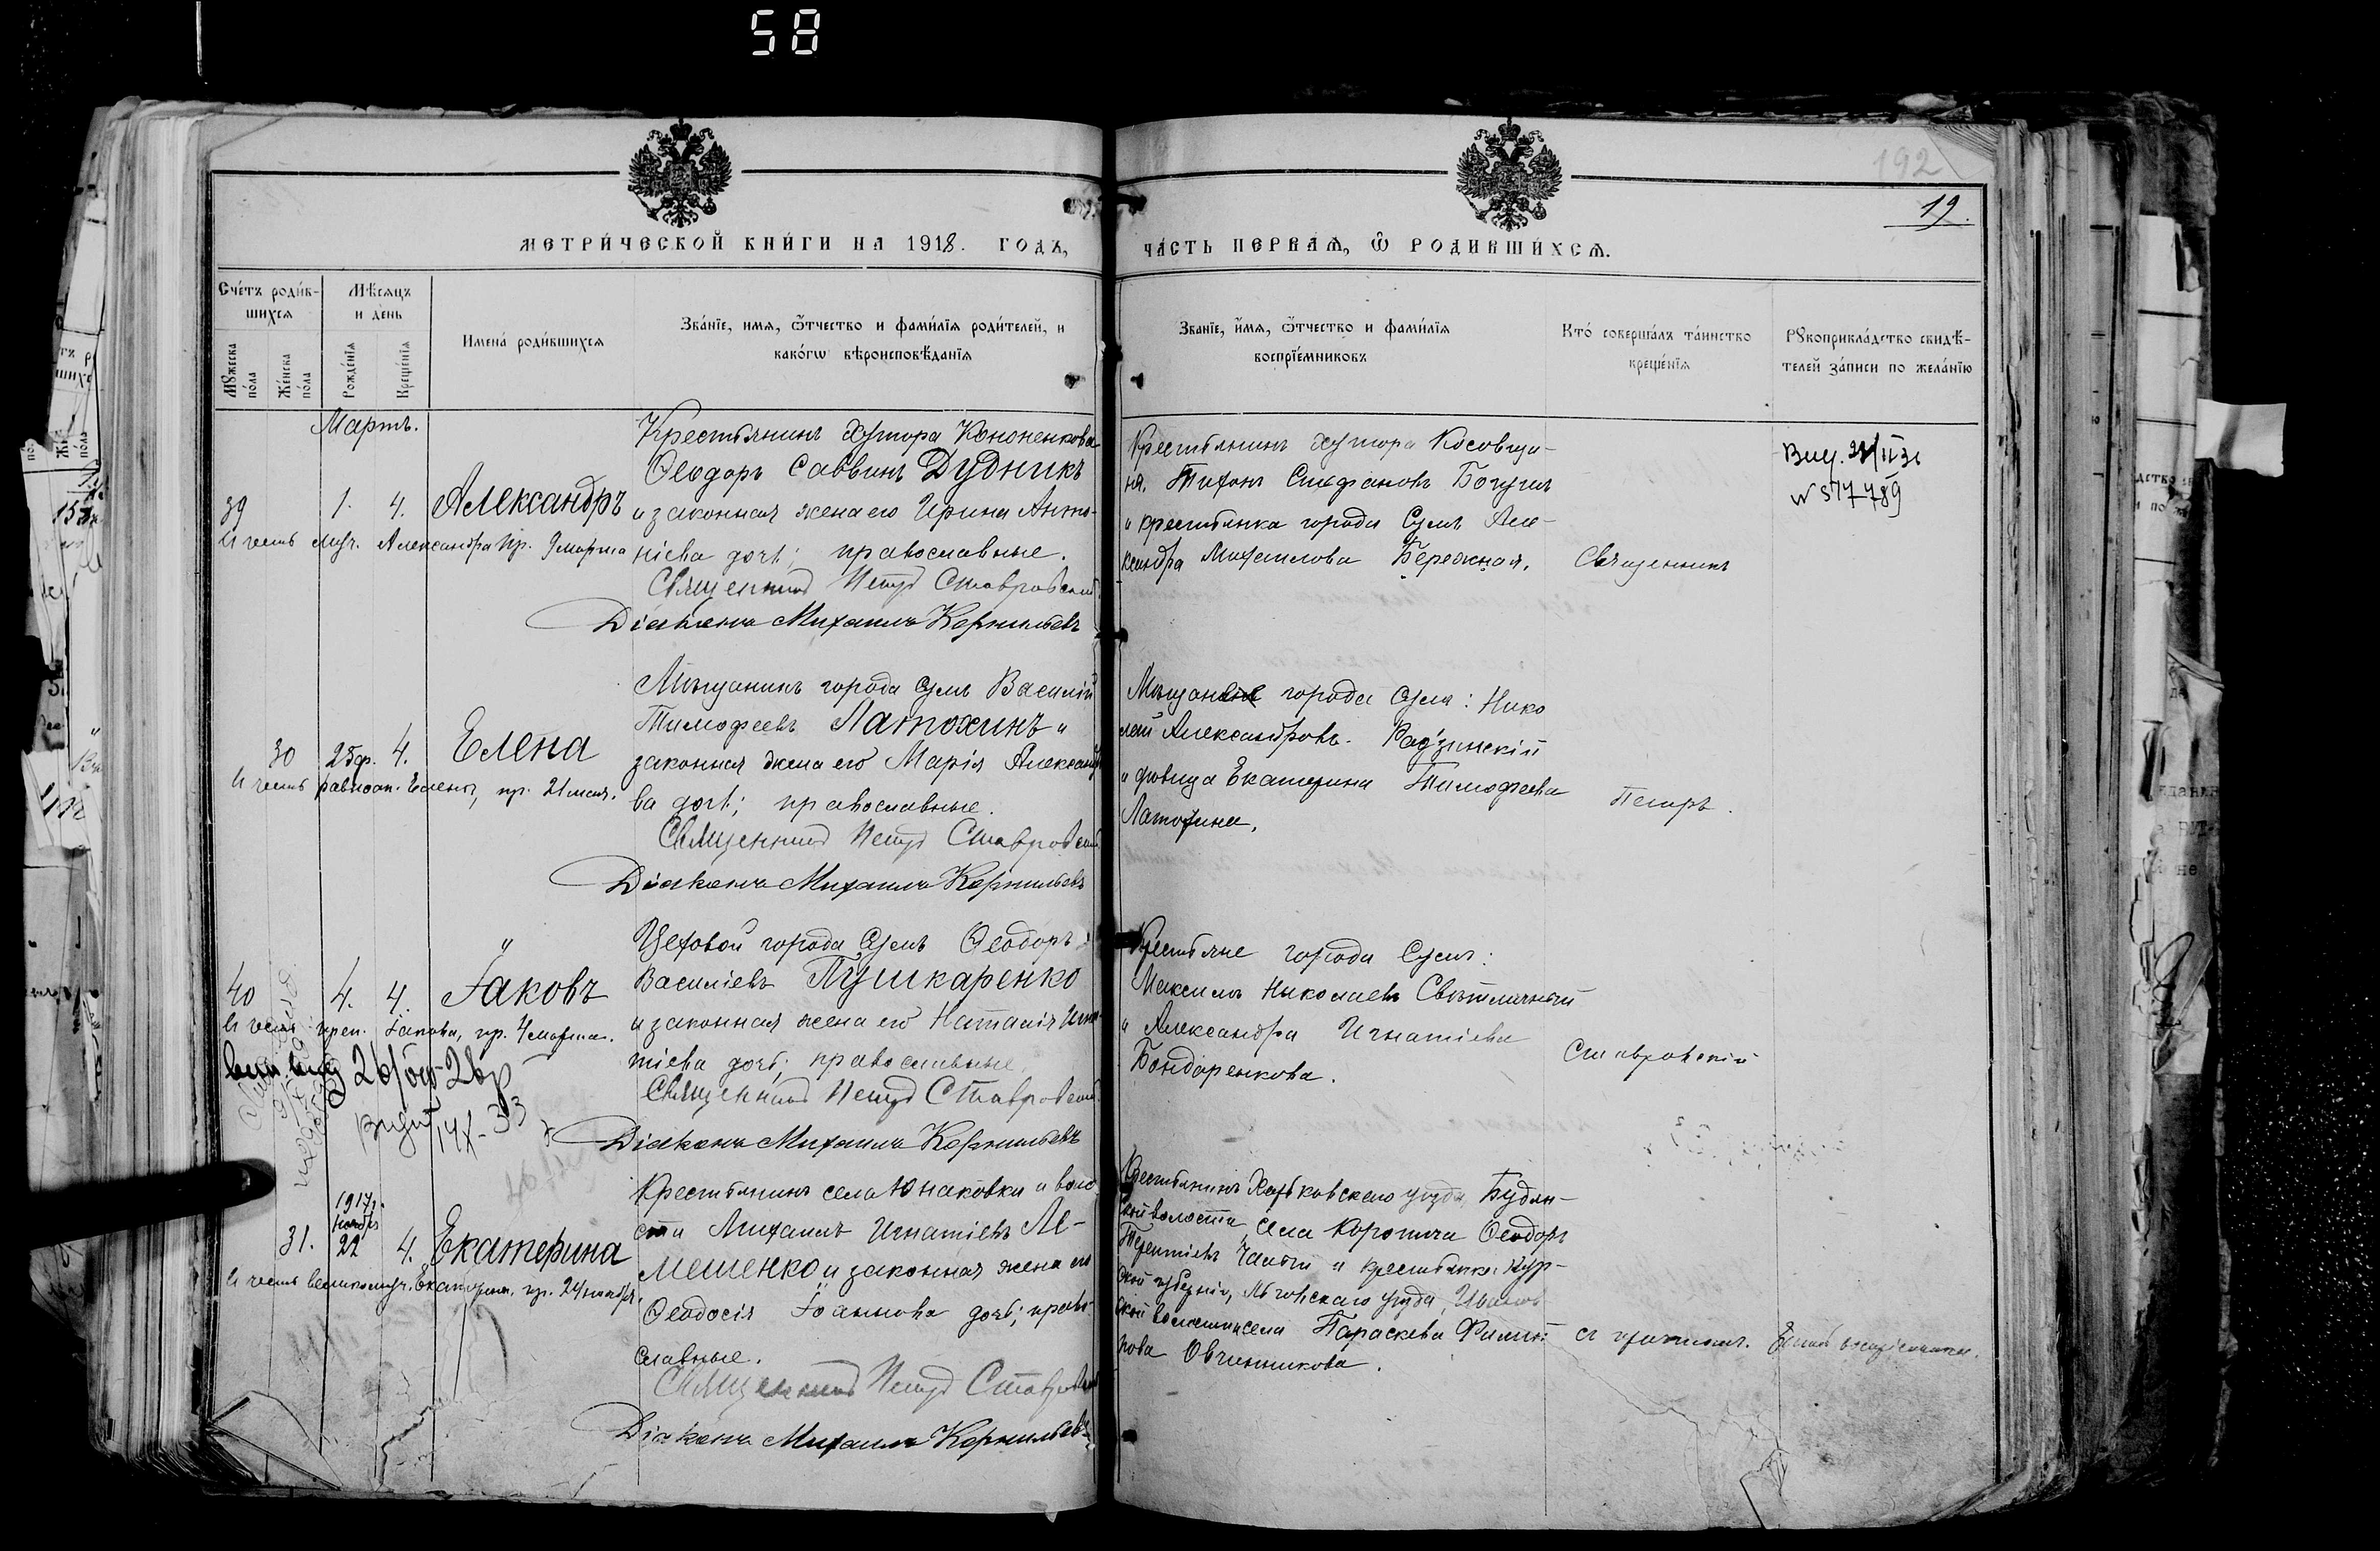 58
192
19.
МЕТРИ́ЧЕСКОЙ КНИ́ГИ НА 1918. ГОДЪ,
ЧА́СТЬ ПЕРВАѦ, Ѽ РОДИВШИ́ХСѦ.
Сче́тъ роди́в-
шихсѧ
Мꙋ́жеска по́ла
Же́нска по́ла
Мѣ́сѧцъ
и де́нь
Рожде́нїѧ
Креще́нїѧ
Имена́ роди́вшихсѧ
Зва́нїе, имѧ, ѿтчество и фами́лїѧ роди́телей, и
како́гѡ вѣроисповѣ́данїѧ
Зва́нїе, и́мѧ, ѿтчество и фами́лїѧ
воспрїе́мниковъ
Кто́ соверша́лъ та́инство
креще́нїѧ
Рꙋкоприкла́дство свидѣ́-
телей за́писи по жела́нїю
Мартъ.
39
1.
4.
Александръ
въ честь муч. Александра пр. 9 марта
Крестьянинъ хутора Кононенкова
Ѳеодоръ Саввинъ Дудникъ
и законная жена его Ирина Анто-
ніева дочь; православные.
Священникъ Петръ Ставровскій
Діаконъ Михаилъ Корнильевъ
Крестьянинъ хутора Косовщи-
на, Тихонъ Стефановъ
и крестьянка города Сумъ Але-
ксандра Михаилова Бережная.
Священникъ
N 577789
30
25 ф.
4.
Елена
въ честь равноап. Елены, пр. 21 мая.
Мѣщанинъ города Сумъ Василій
Тимофеевъ Латохинъ и
законная жена его Марія Александро
ва дочь; православные.
Священникъ Петръ Ставровскій
Діаконъ Михаилъ Корнильевъ
города Сумъ: Нико
лай Александровъ Радзинскій
и дѣвица Екатерина Тимофеева
Латохина.
Петръ.
40
4.
4.
Іаковъ
въ честь преп. Іакова, пр. 4 марта.
Цеховой города Сумъ Ѳеодоръ
Василіевъ Пушкаренко
и законная жена его Наталія Игна
тіева дочь; православные.
Священникъ Петръ Ставровскій
Діаконъ Михаилъ Корнильевъ
Крестьяне города Сумъ:
Максимъ Николаевъ Свѣтличный
и Александра Игнатіева
Бондаренкова.
Ставровскій
1917 г.
ноября
31.
22
4.
Екатерина
въ честь великомуч. Екатерины, пр. 24 ноября.
Крестьянинъ села Юнаковки и воло
сти Михаилъ Игнатіевъ Ле-
мешенко и законная жена его
Ѳеодосія Іоаннова дочь; право-
славные.
Священникъ Петръ Ставровскій
Діаконъ Михаилъ Корнильевъ
Крестьянинъ Харьковскаго уѣзда, Будян-
ской волости, села Коротича Ѳеодоръ
Терентіевъ и крестьянка Кур-
ской губерніи, Льговскаго уѣзда,
волости и села Параскева
пова Овчинникова.
съ причтомъ.